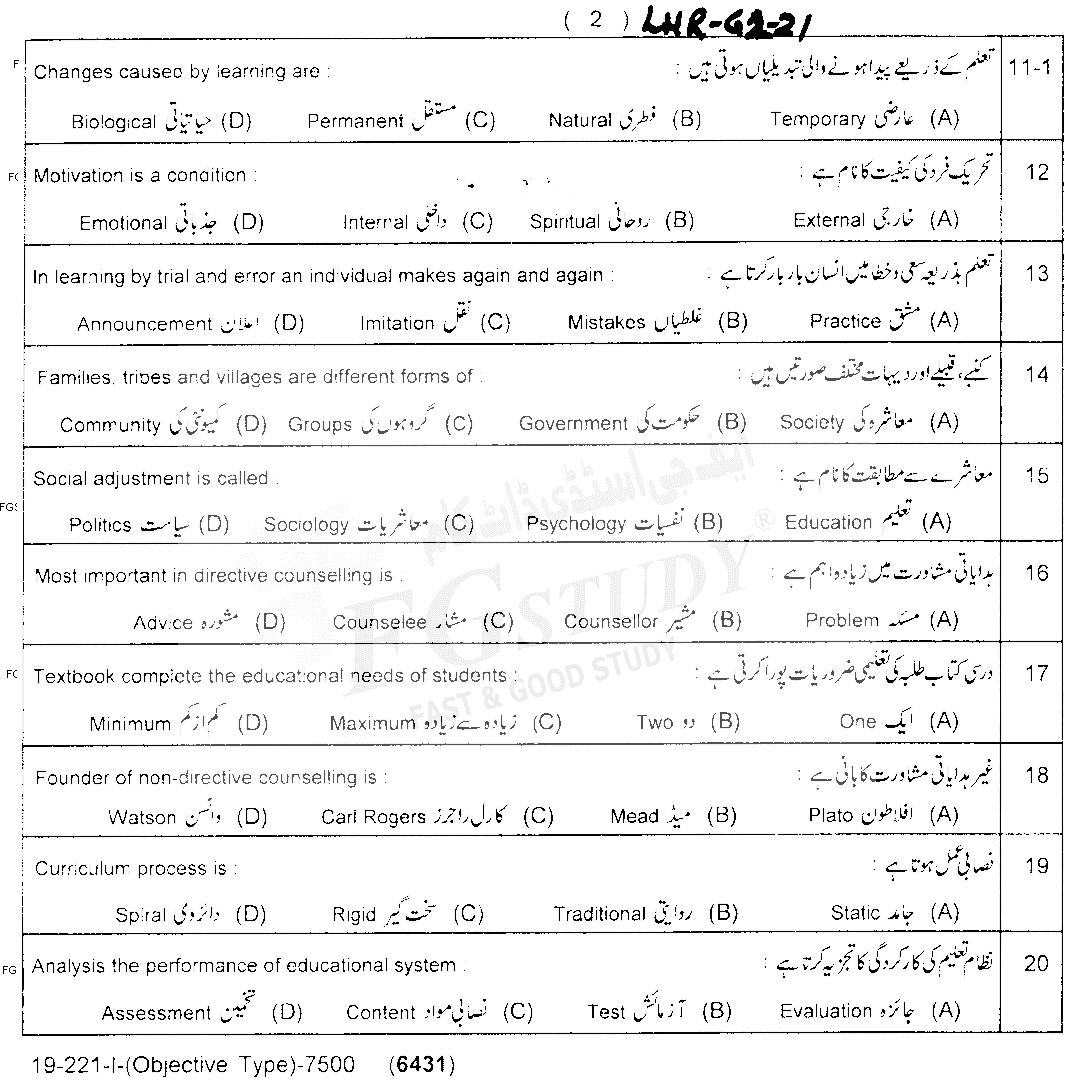 ( 2 ) LHR-G2-21
F Changes caused by learning are : تعلم کے ذریعے پیدا ہونے والی تبدیلیاں ہوتی ہیں : 11-1
Biological حیاتیاتی (D) Permanent مستقل (C) Natural فطری (B) Temporary عارضی (A)
FG Motivation is a condition : تحریک فرد کی کیفیت کا نام ہے : 12
Emotional جذباتی (D) Internal داخلی (C) Spiritual روحانی (B) External خارجی (A)
In learning by trial and error an individual makes again and again : تعلم بذریعہ سعی و خطا میں انسان بار بار کرتا ہے : 13
Announcement اعلان (D) Imitation نقل (C) Mistakes غلطیاں (B) Practice مشق (A)
Families, tribes and villages are different forms of : کنبے، قبیلے اور دیہات مختلف صورتیں ہیں : 14
Community کمیونٹی کی (D) Groups گروہوں کی (C) Government حکومت کی (B) Society معاشرہ کی (A)
Social adjustment is called : معاشرے سے مطابقت کا نام ہے : 15
FGS Politics سیاست (D) Sociology معاشریات (C) Psychology نفسیات (B) Education تعلیم (A)
ایف جی اسٹڈی ڈاٹ کام
Most important in directive counselling is : ہدایاتی مشاورت میں زیادہ اہم ہے : 16
Advice مشورہ (D) Counselee مشار (C) Counsellor مشیر (B) Problem مسئلہ (A)
FG STUDY ®
FAST & GOOD STUDY
FG Textbook complete the educational needs of students : درسی کتاب طلبہ کی تعلیمی ضروریات پورا کرتی ہے : 17
Minimum کم از کم (D) Maximum زیادہ سے زیادہ (C) Two دو (B) One ایک (A)
Founder of non-directive counselling is : غیر ہدایاتی مشاورت کا بانی ہے : 18
Watson واٹسن (D) Carl Rogers کارل راجرز (C) Mead میڈ (B) Plato افلاطون (A)
Curriculum process is : نصابی عمل ہوتا ہے : 19
Spiral دائروی (D) Rigid سخت گیر (C) Traditional روایتی (B) Static جامد (A)
FG Analysis the performance of educational system : نظام تعلیم کی کارکردگی کا تجزیہ کرتا ہے : 20
Assessment تخمین (D) Content نصابی مواد (C) Test آزمائش (B) Evaluation جائزہ (A)
19-221-I-(Objective Type)-7500 (6431)